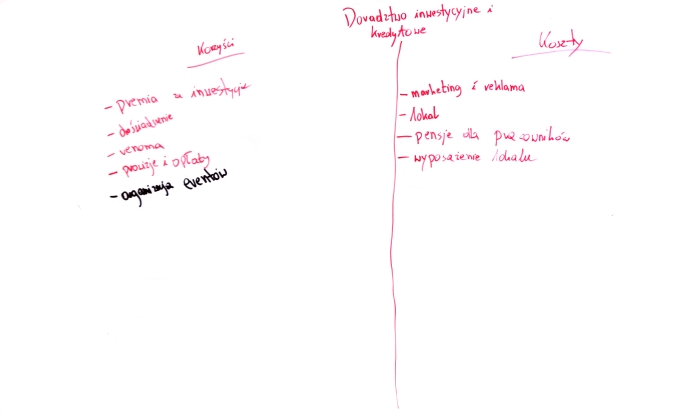 Doradztwo inwestycyjne i
kredytowe
Korzyści
- premia za inwestycje
- doświadczenie
- renoma
- prowizje i opłaty
- organizacja eventów
Koszty
- marketing i reklama
- lokal
- pensje dla pracowników
- wyposażenie lokalu